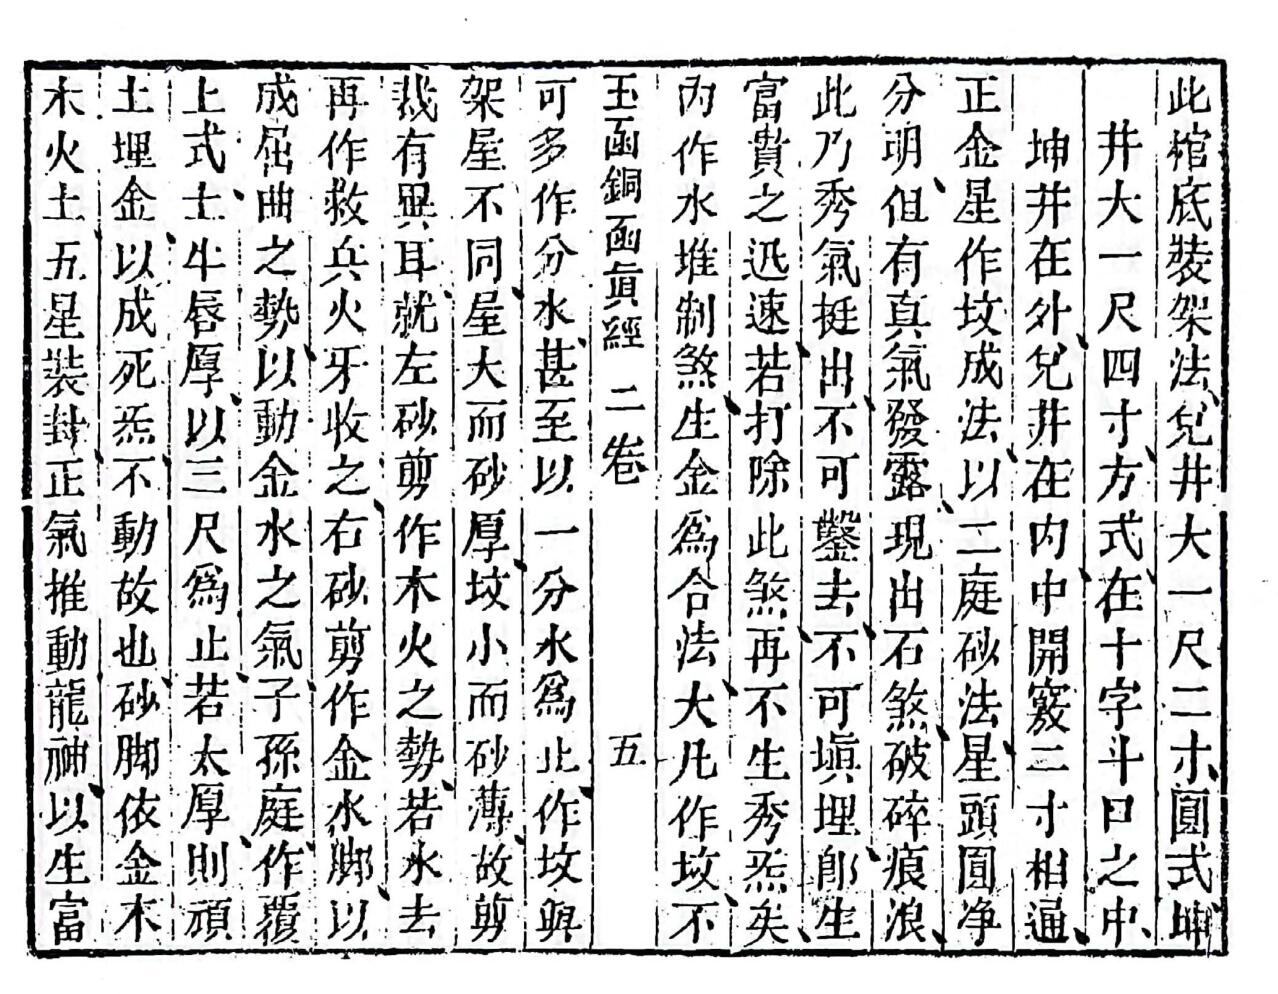 此棺底裝架法兌井大一尺二寸圓式坤
井大一尺四寸方式在十字斗口之中
坤井在外兌井在內中開竅二寸相通
正金星作坟成法以二庭砂法星頭圓净
分明但有真氣發露現出石煞破碎痕浪
此乃秀氣挺出不可鑿去不可塡埋即生
富貴之迅速若打除此煞再不生秀炁矣
內作水堆制煞生金爲合法大凡作坟不
玉函銅函眞經 二卷 五
可多作分水甚至以一分水爲止作坟與
架屋不同屋大而砂厚坟小而砂薄故剪
裁有異耳就左砂剪作木火之勢若水去
再作救兵火牙收之右砂剪作金水脚以
成屈曲之勢以動金水之氣子孫庭作覆
上式土牛唇厚以三尺爲止若太厚則頑
土埋金以成死炁不動故也砂脚依金木
木火土五星裝封正氣推動龍神以生富